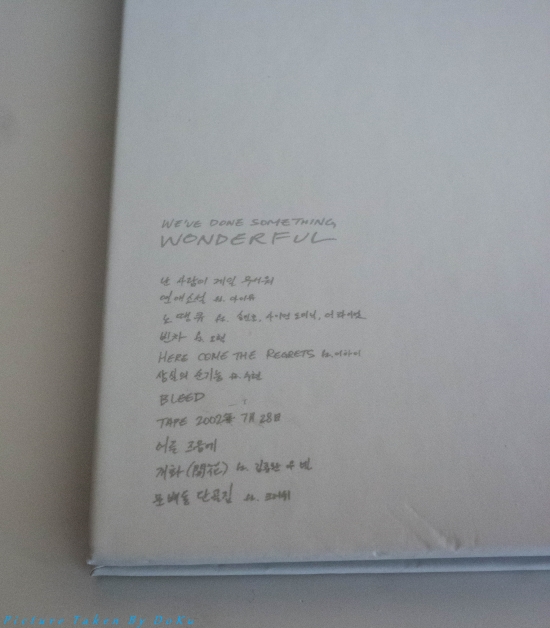 WE'VE DONE SOMETHING
WONDERFUL
난 사람이 제일 무서워
연애소설 ft. 아이유
노땡큐 ft. 송민호, 사이먼 도미닉, 더 콰이엇
빈차 ft. 오혁
HERE COME THE REGRETS ft. 이하이
상실의 순기능 ft. 수현
BLEED
TAPE 2002年 7月 28日
어른 즈음에
개화 (開花) ft. 김종완 of 넬
문배동 단골집 ft. 크러쉬
Picture Taken By